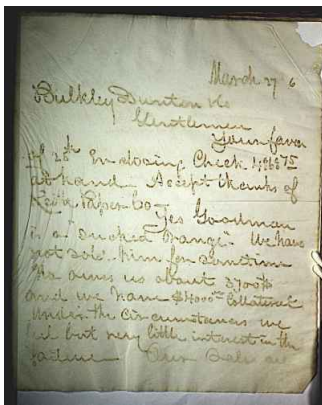 March 27 6
Bulkley Dunton &Co
Gentlemen
Your favor
of 25th Enclosing Check
at hand Accept thanks of
Paper Co
Yes Goodman
is a "Sucked Orange" We have
not sold him for sometime
He owes us about 3700$
and we have $4000 Collateral
Under the circumstances we
feel but very little interest in the
failure Our Sales are